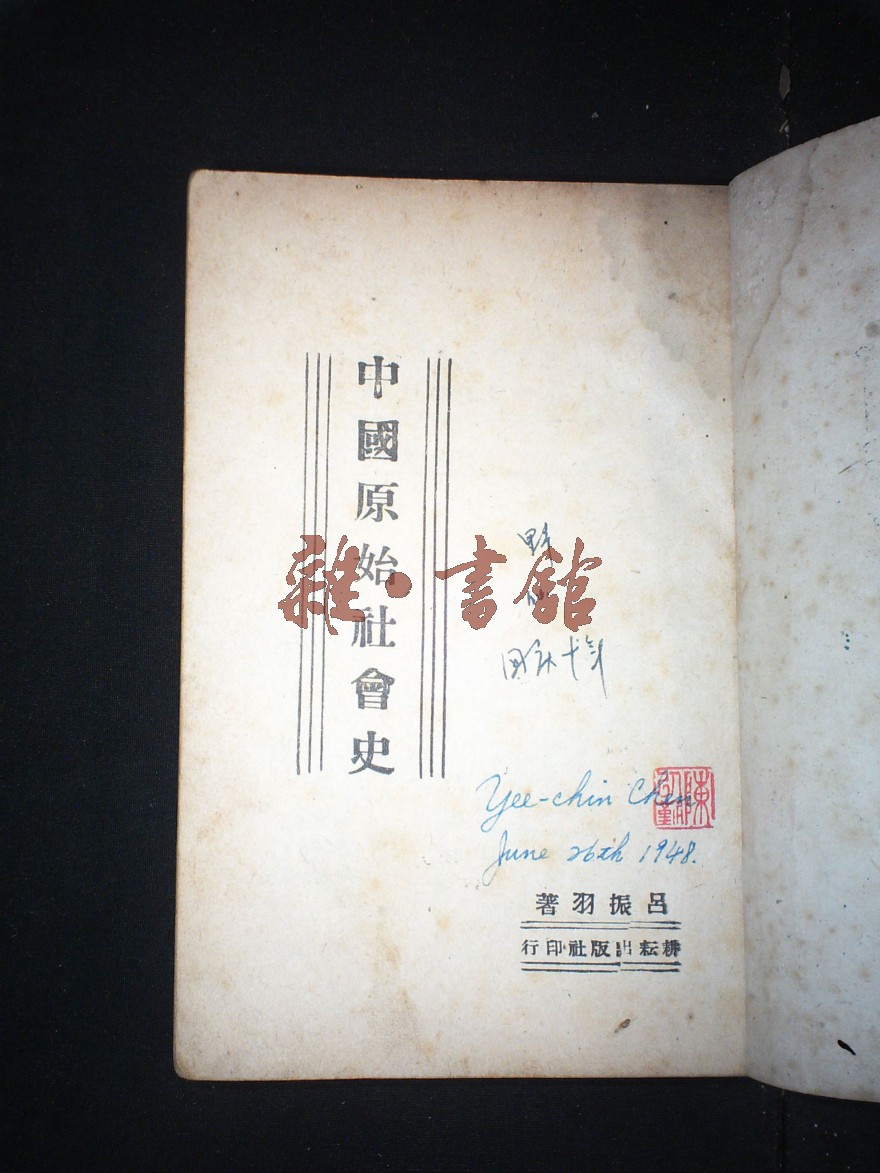 中國原始社會史
雜·書館
Yee-chin Chen
June 26th 1948.
呂振羽著
耕耘出版社印行